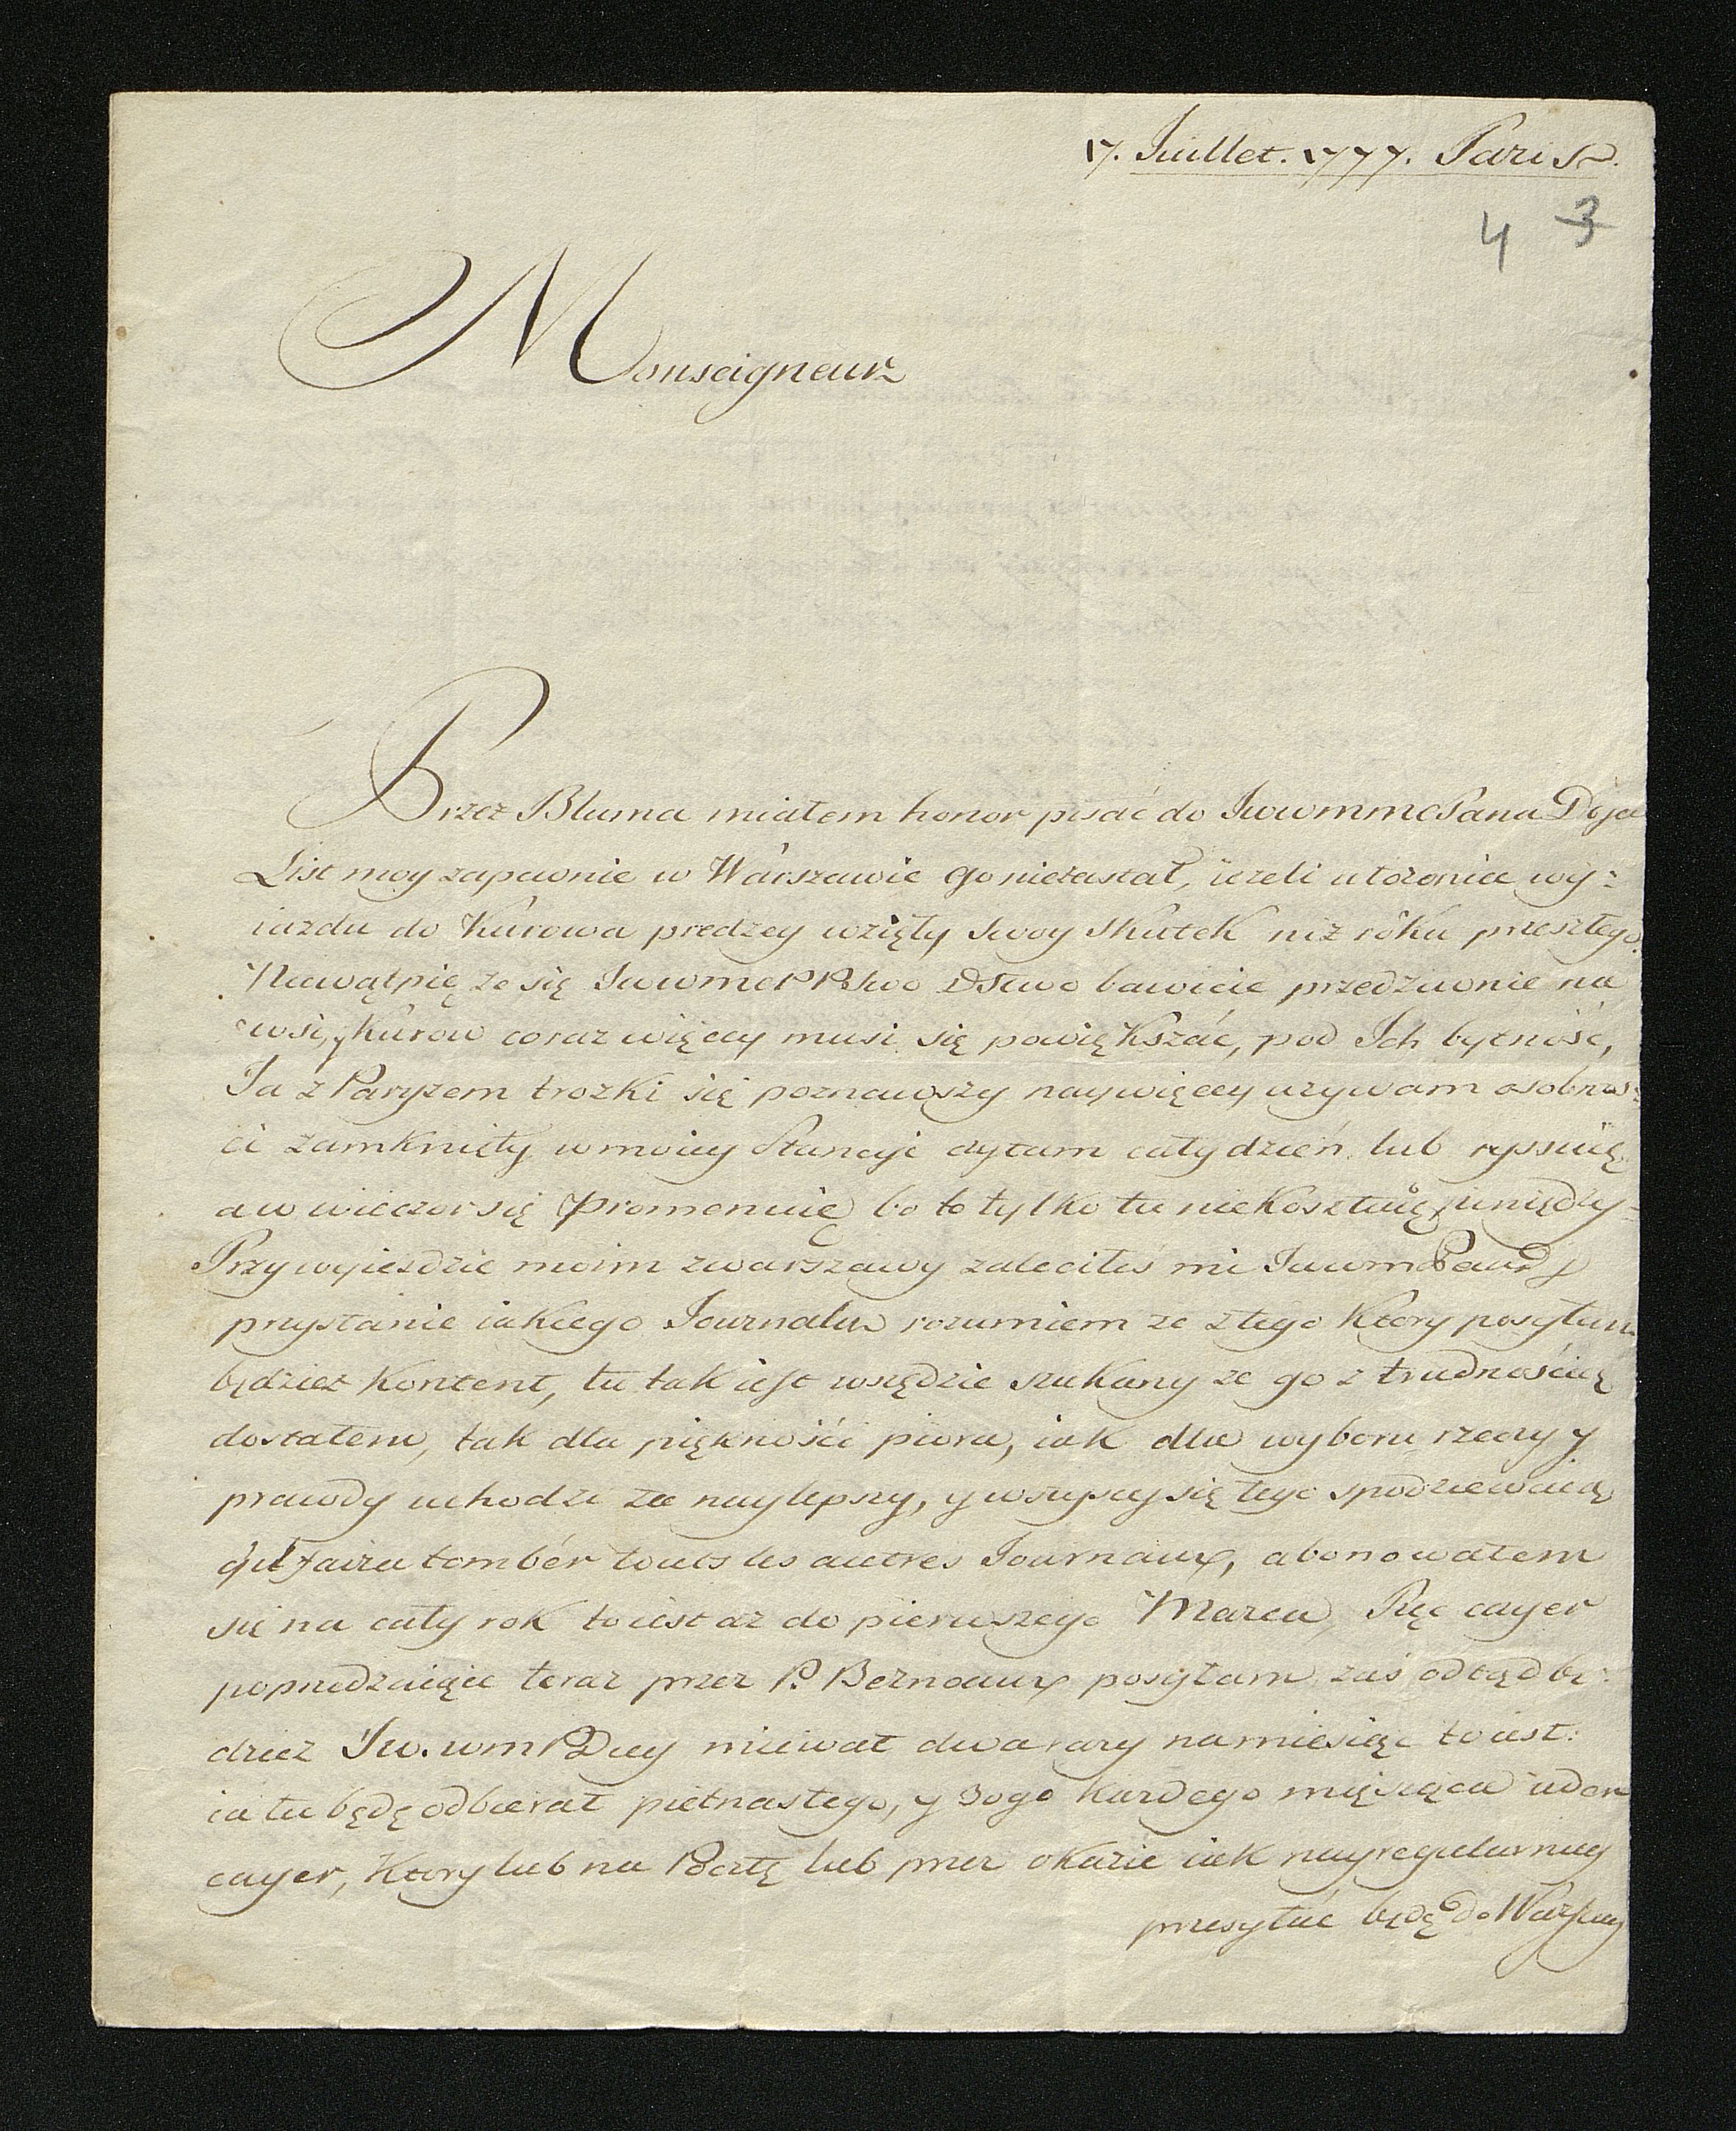 17. Juillet. 1777. Paris.
4 3
Monseigneur
Przez Bluma miałem honor pisać do Jwwmmcpana Doja
List moy zapewnie w Warszawie go niezastał, ieżeli ułożenia wy=
iazdu do Kurowa prędzey wzięły swoy skutek niż roku przeszłego.
Niewątpię że się Jwwmc PPstwo Dstwo bawicie przedziwnie na
wsi, y Kurow coraz więcey musi się powiększać, pod Ich bytność,
Ja z Paryżem trozki się poznawszy naywięcey używam osobnoś=
ci zamknięty w moiey Stancyi czytam cały dzień lub ryssuię
a w wieczor się promenuię bo to tylko tu niekosztuię
Przy wyieździe moim z warszawy zaleciłeś mi Jwwm Pan D
przysłanie iakiego Journalu rozumiem ze z tego Ktory posyłam
będziesz Kontent, tu tak iest wszędzie szukany ze go z trudnością
dostałem, tak dla piękności piora, iak dla wyboru rzeczy y
prawdy uchodzi za naylepszy, y wszyscy się tego spodziewaią
qu'il faira tombér touts les autres Journaux, abonowałem
się na cały rok to iest az do pierwszego Marca, Pięc cayer
poprzedzaiące teraz przez P. Bernoaux posyłam, zaś odtąd bę=
dziez Jw. wm P Dziey miewał dwa razy na miesiąc to iest:
ia tu będę odbierał piętnastego, y 30go każdego miesiąca ieden
cayer, Ktory lub na Pocztę lub przez okazie iak nayregularniey
przesyłać będę do Warszawy